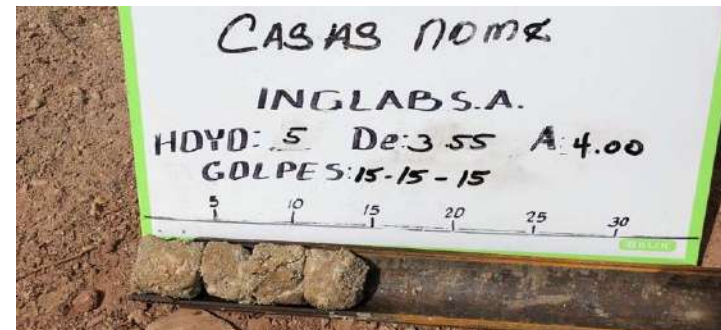 CASAS NOMZ
INGLAB S.A.
HOYO: 5 De: 3.55 A: 4.00
GOLPES: 15-15-15
5 10 15 20 25 30